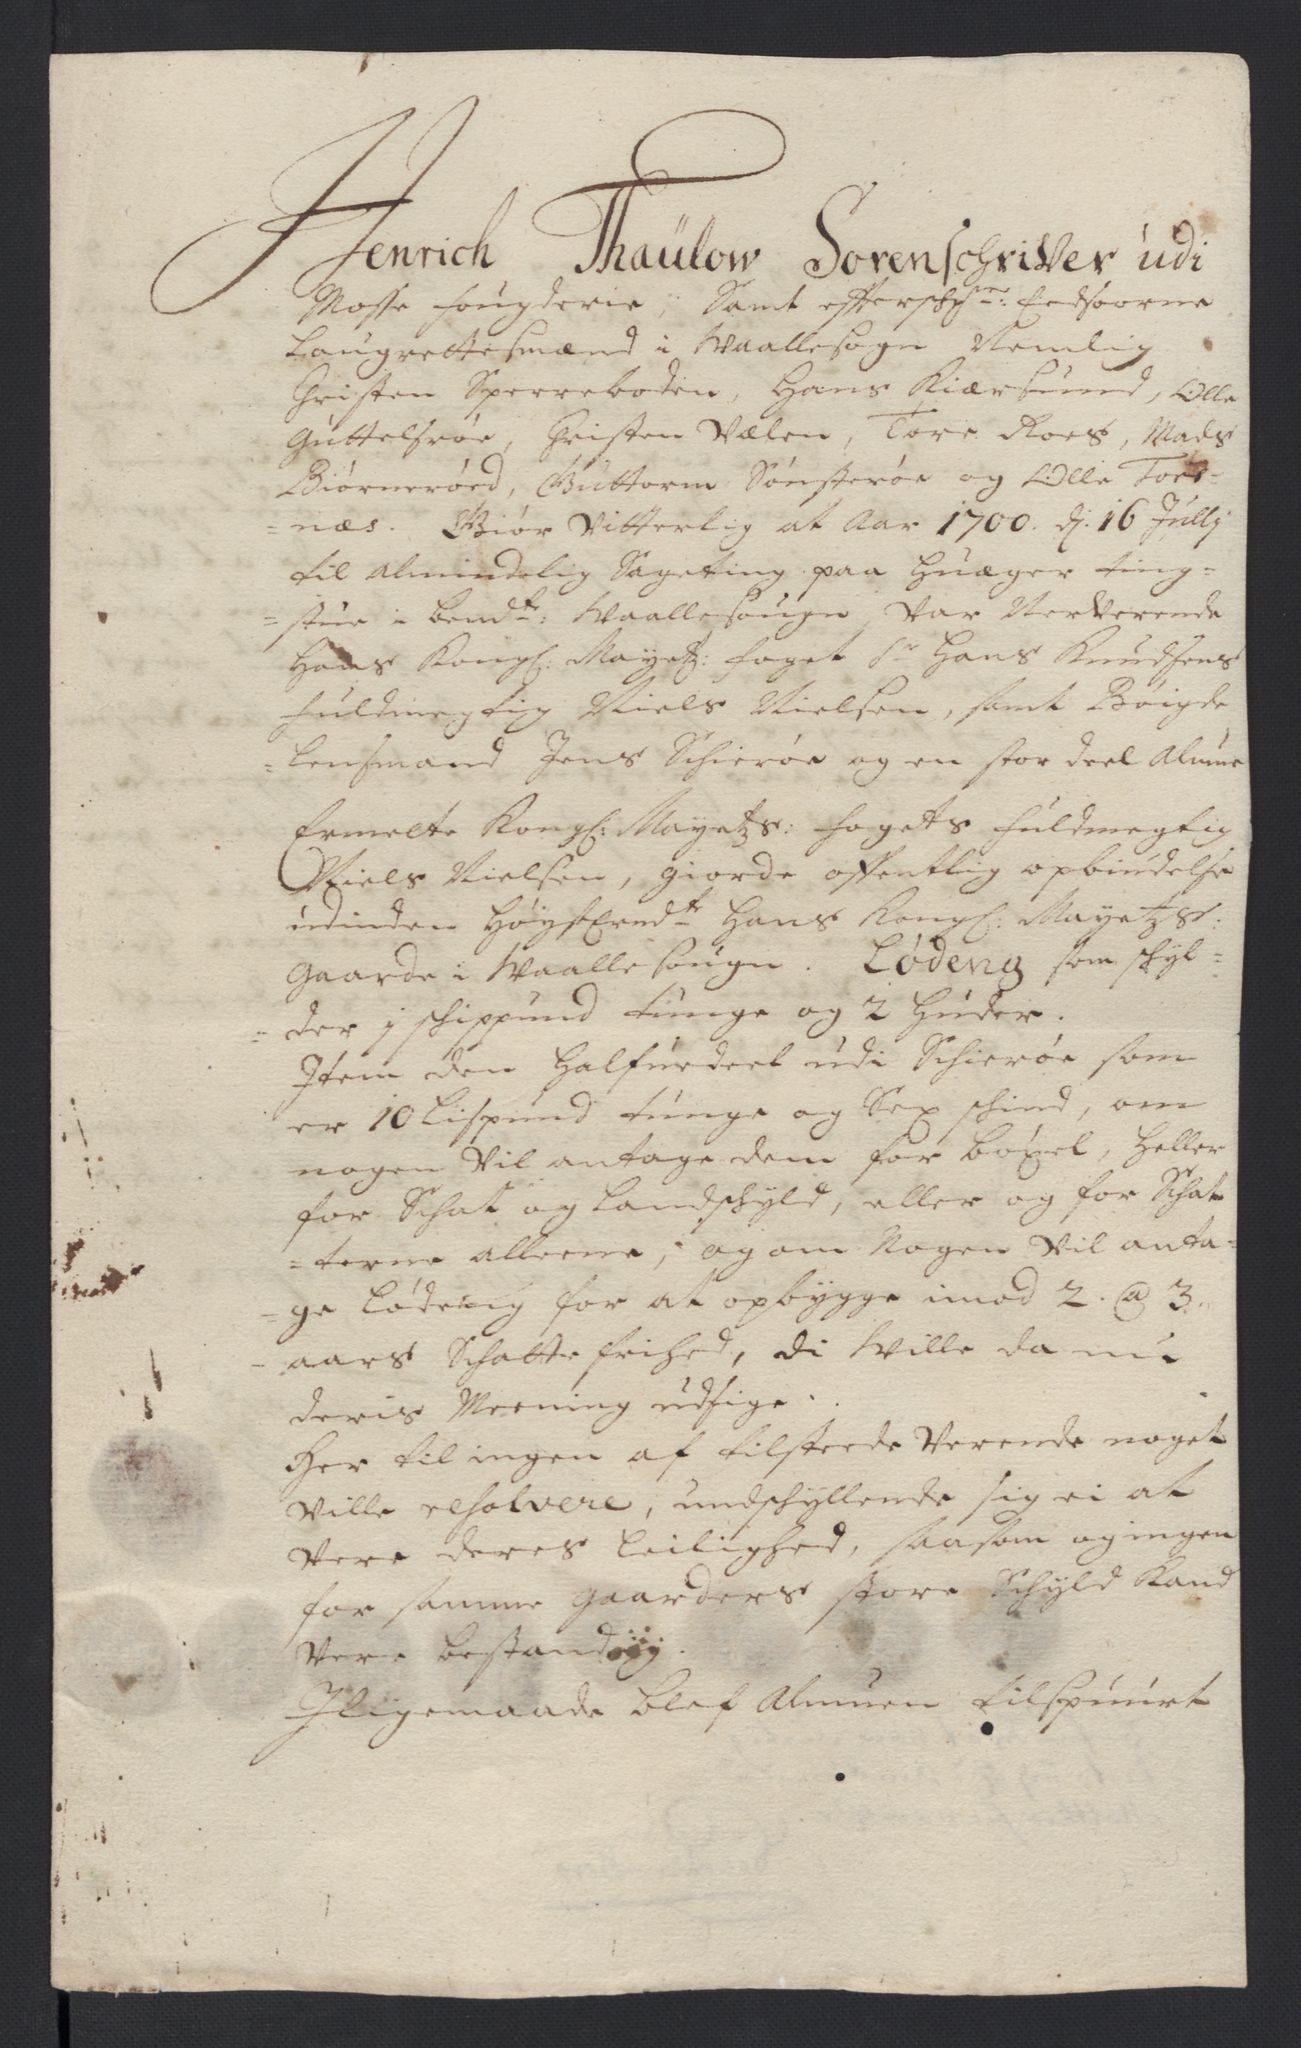 Henrich Thaülow Sorenschriver udi
Mosse fougderie, Samt effterschrne: Eedsoorne
Laugrettesmænd i Waallesogn Nemlig
Christen Sperreboden, Hans Kiærsund, Olle
Guttelsröe, Christen Vælen, Tore Roes, Mads
Biörneröed, Guttorm Sönsteröe og Olle Tors-
-næs. Giör Vitterlig at Aar 1700. dj. 16 Jully
til Almindelig Sageting paa Huæger ting-
-stue i bemdte: Waallesougn, Var Nerverende
Hans Kongl: Mayetz: foget Sr Hans Knudsens
fuldmegtig Niels Nielsen, samt Böigde
-Lensmand Jens Schieröe og en stor deel Almue
Ermelte Kongl: Mayetzs: fogets fuldmegtig
Niels Nielsen, giorde offentlig opbiudelse
udinden HöystErmdte Hans Kongl: Mayetzs:
Gaarde i Waallesougn. Lödeng som schyl-
-der j schippund tunge og 2 huder.
Jtem den Halfuedeel udi Schieröe som
er 10 Lispund tunge og Sex schind, om
nogen Vil antage dem for böxel, heller
for Schat og Landschyld, eller og for Schat
-terne alleene, og om Nogen Vil anta-
-ge Lödeng for at opbygge imod 2. @ 3.
-aars Schatte frihed, di Wille da nu
deris Meening udsige.
Her til ingen af tilstede Verende noget
Ville resolvere, undschyllende sig ei at
Vere deres Leilighed, saasom og ingen
for samme gaarders store Schyld Kand
Vere bestandig.
Jligemaade blef Almuen tilspuurt